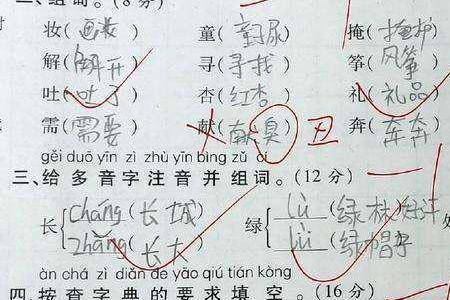 二、组词。(8分)
妆(画妆) 童(童尿) 掩(掩护)
解(解开) 寻(寻找) 筝(风筝)
吐(吐了) 杏(红杏) 礼(礼品)
需(需要) 献(献臭) 奔(车奔)
gěi duō yīn zì zhù yīn bìng zǔ cí
三、给多音字注音并组词。(12分)
长 cháng (长城) 绿 lù (绿林好汉)
zhǎng (长大) lǜ (绿帽子)
àn chá zì diǎn de yāo qiú tián kòng
四、按查字典的要求填空。(16分)